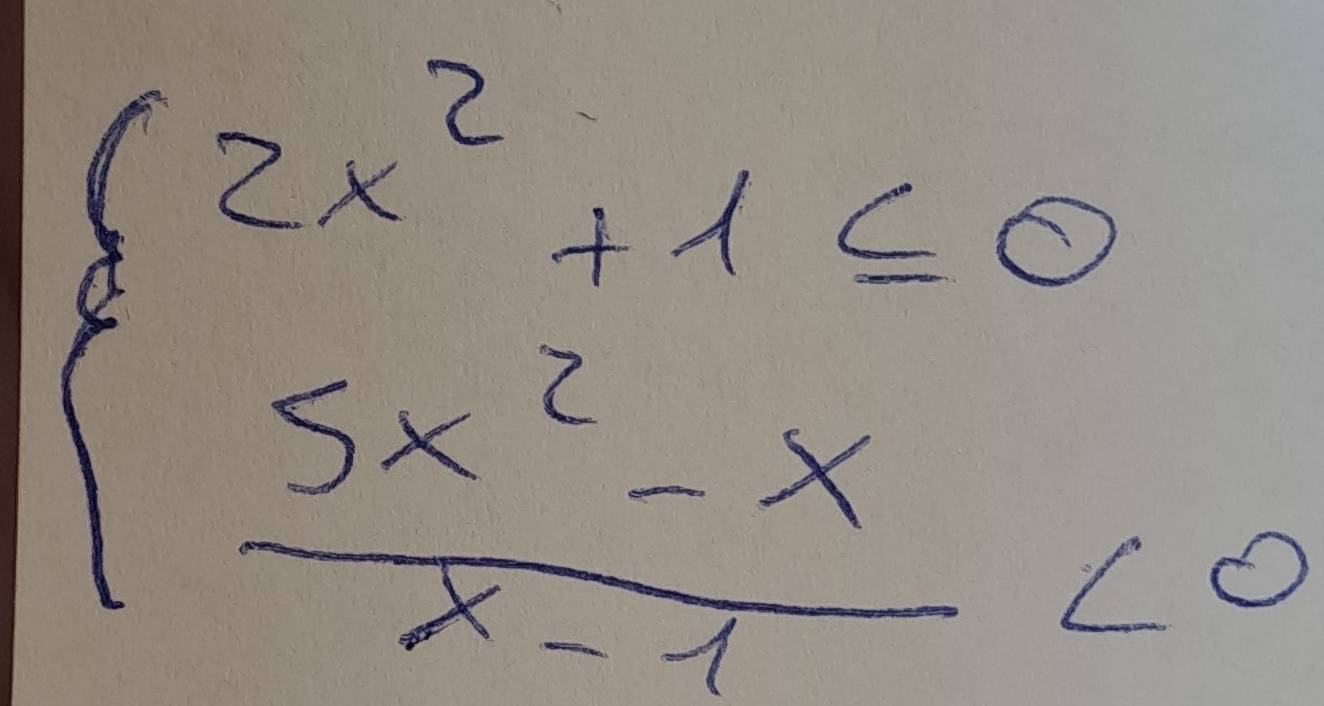 2x² + 1 ≤ 0
5x² - x
x - 1 < 0